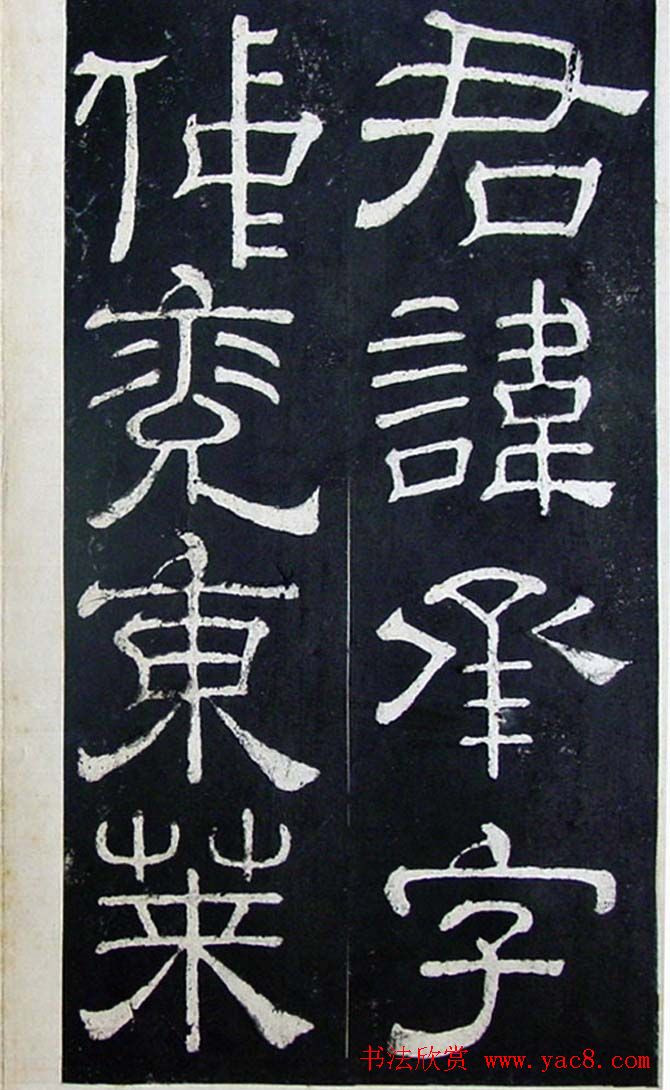 君諱承字
仲兖東萊
书法欣赏 www.yac8.com